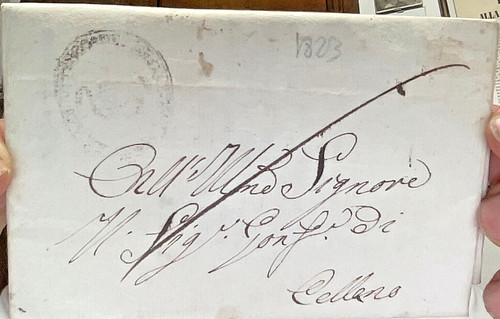 1823
All'Ill.mo Signore
Il Sig.r Gonf.e di
Celleno